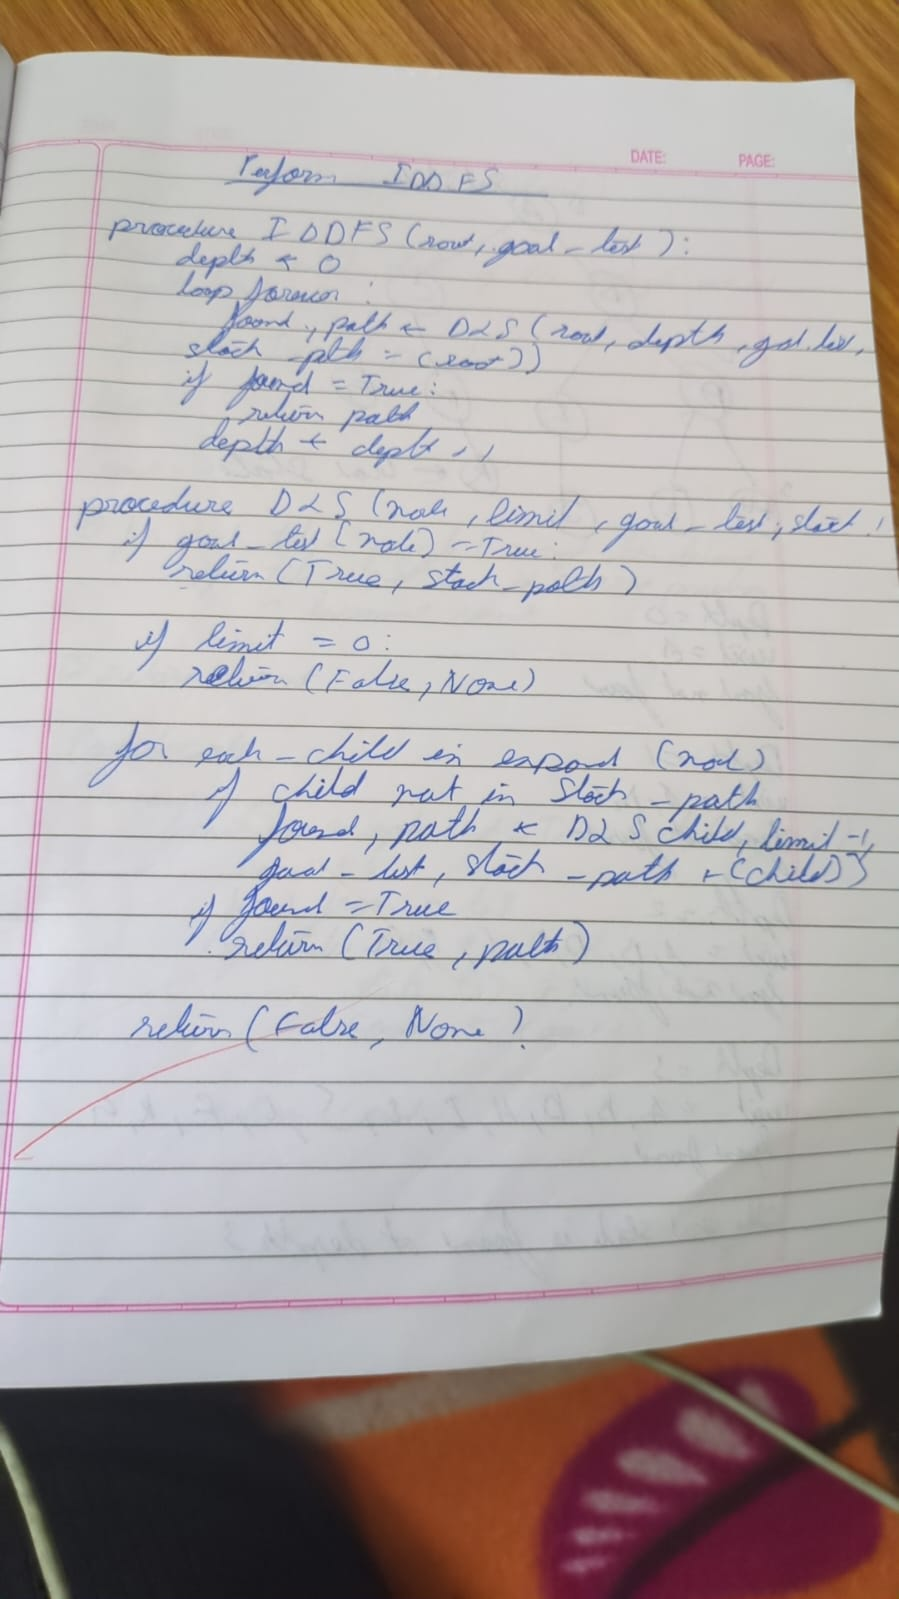 DATE: PAGE:
Perform IDDFS
procedure IDDFS (root, goal_test):
depth ← 0
loop forever:
found, path ← DLS (root, depth, goal_test,
stack_path = (root))
if found = True:
return path
depth ← depth + 1
procedure DLS (node, limit, goal_test, stack
if goal_test (node) = True:
return (True, stack_path)
if limit = 0:
return (False, None)
for each_child in expand (nod)
if child not in stack_path
found, path ← DLS child, limit-1,
goal_test, stack_path + (child))
if found = True
return (True, path)
return (False, None)